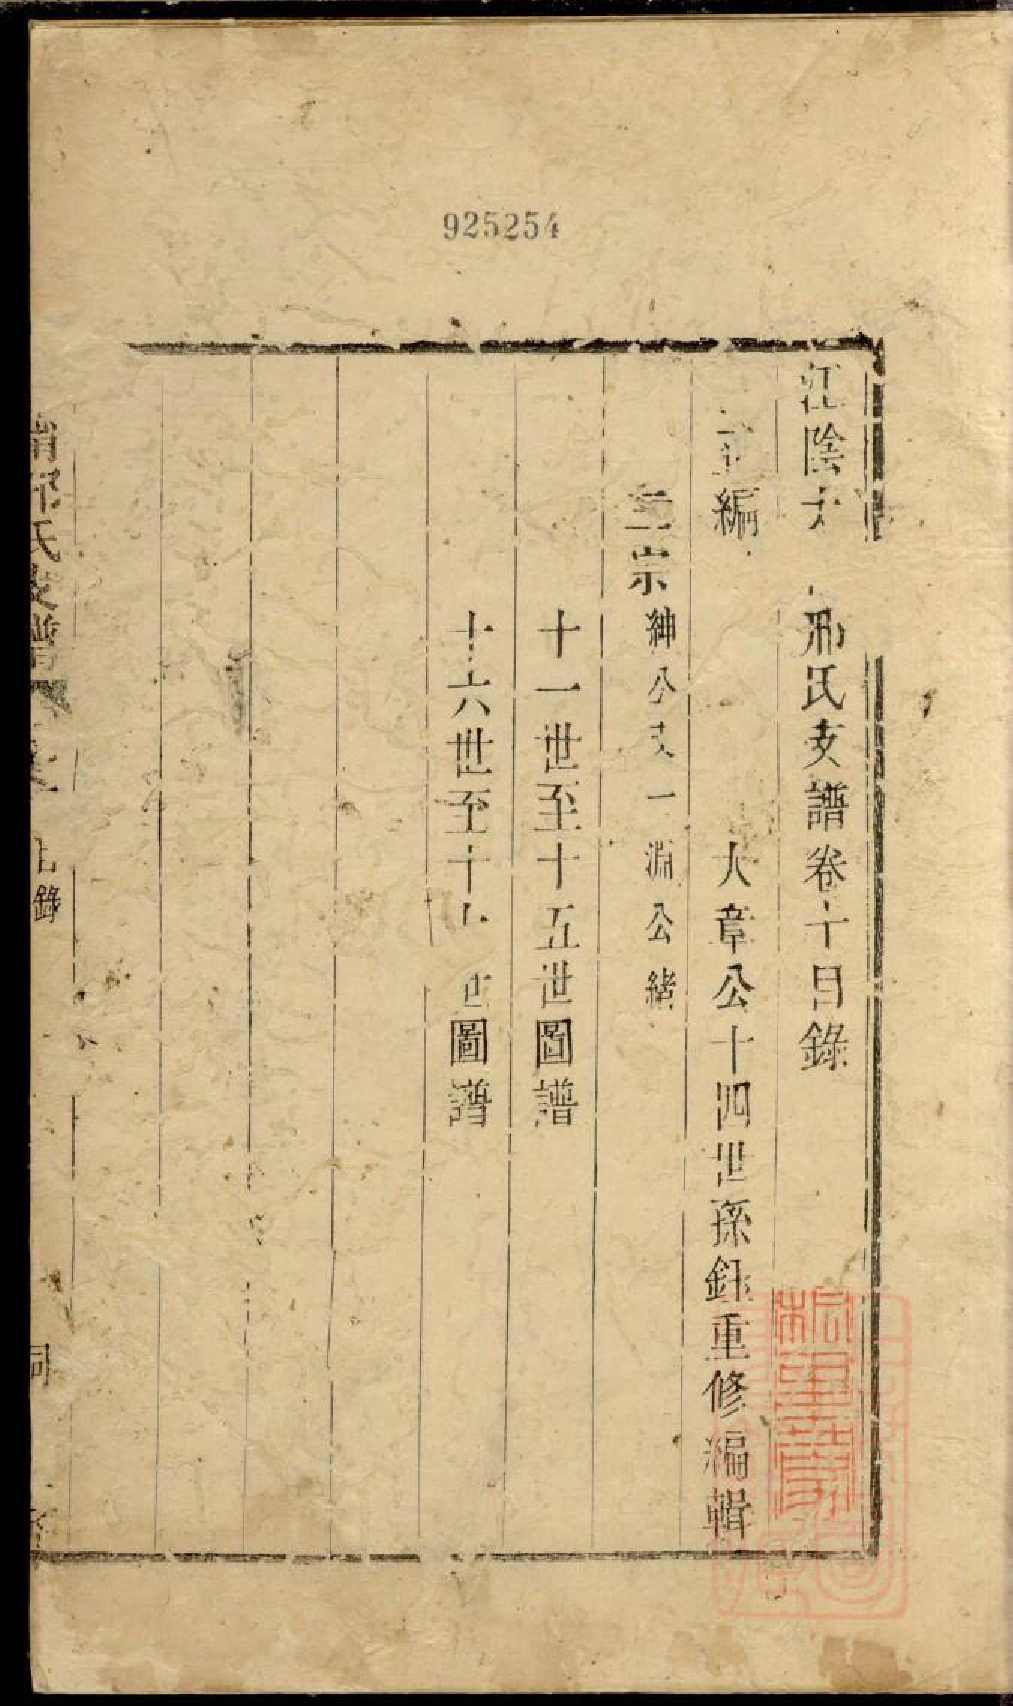 925254
江陰 邢氏支譜卷十目錄
正編
大章公十四世孫鈺重修編輯
三宗 紳公支 一淵公緒
十一世至十五世圖譜
十六世至十 世圖譜
邢氏支譜 目錄